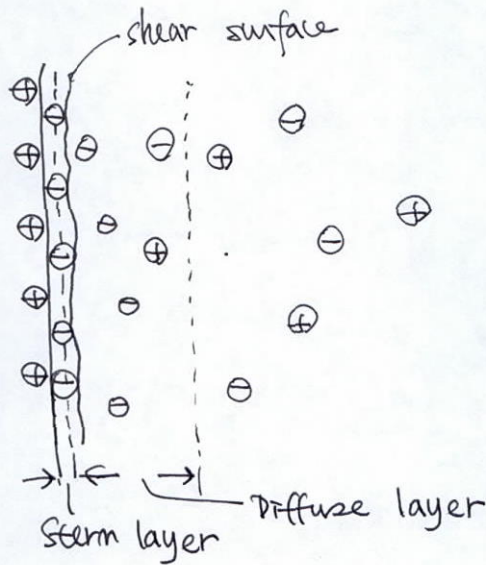 shear surface
Diffuze layer
Sterm layer